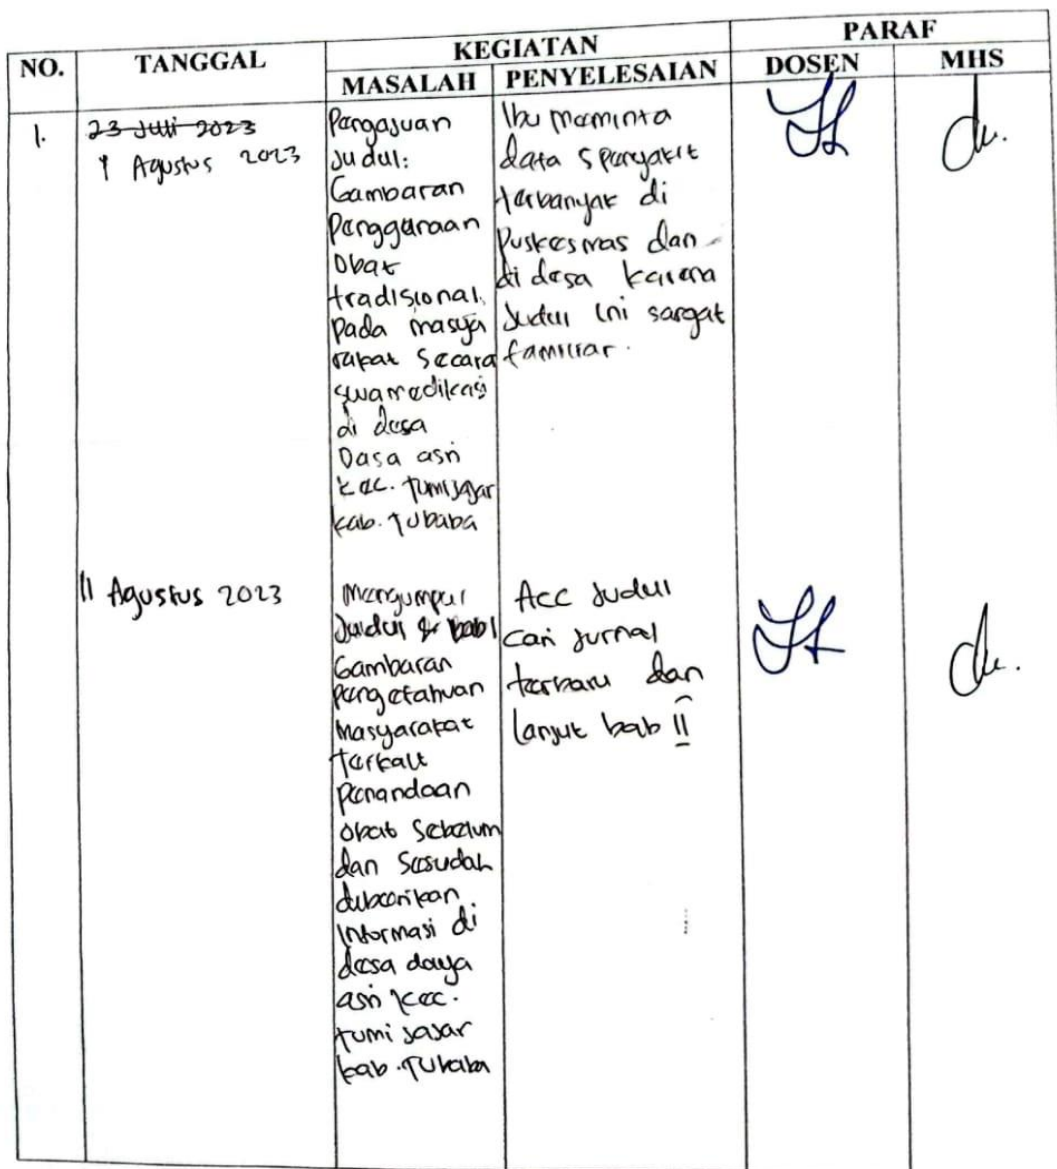 NO. TANGGAL KEGIATAN PARAF
MASALAH PENYELESAIAN DOSEN MHS
1.
23 Juli 2023
1 Agustus 2023
Pengajuan
Judul:
Gambaran
Penggunaan
Obat
tradisional
pada masya
rakat secara
swamedikasi
di desa
Dasa asri
kec. tumijajar
kab. Tubaba
Ibu meminta
data 5 penyakit
terbanyak di
Puskesmas dan
di desa karena
Judul ini sangat
familiar.
11 Agustus 2023
Mengumpul
Judul & bab 1
Gambaran
pengetahuan
Masyarakat
terkait
penandaan
obat Sebelum
dan Sesudah
diberikan
Informasi di
desa daya
asri kec.
tumi jajar
kab. Tubaba
Acc Judul
cari jurnal
terbaru dan
lanjut bab II